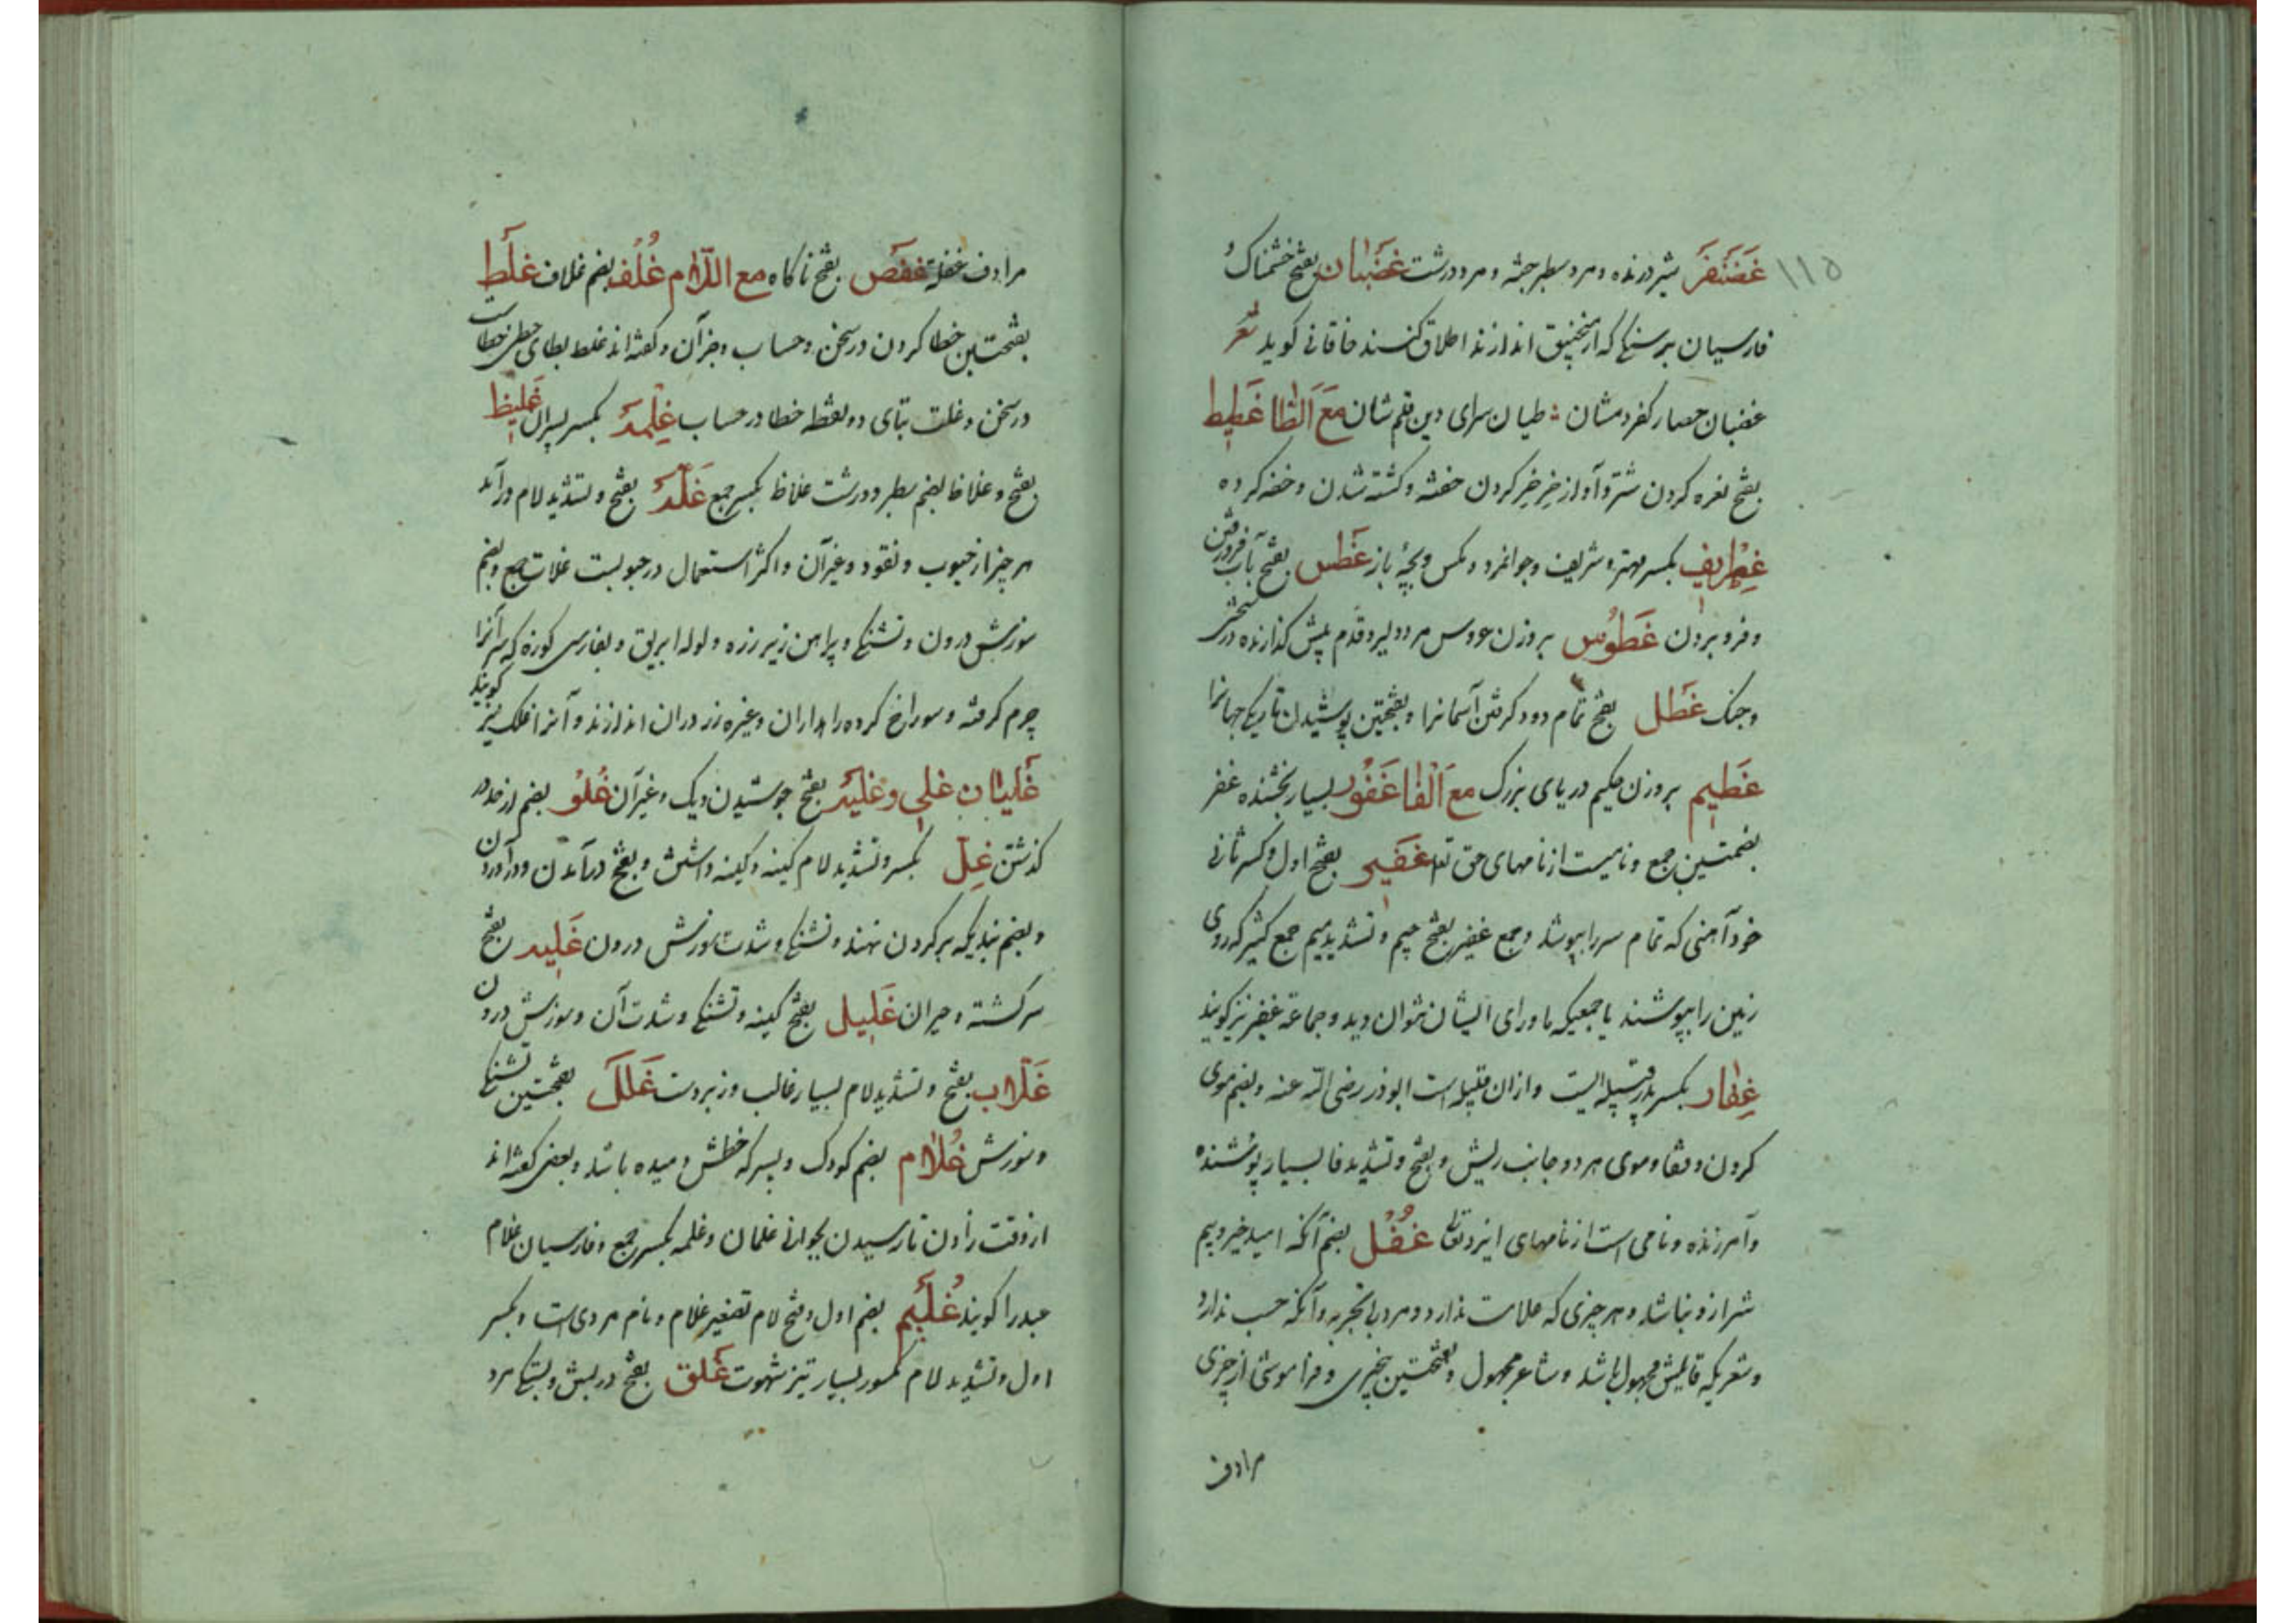 ١١٥
غَضَنْفَر شیر درنده و مرد سطبر جثه و مرد درشت غَضْبان بفتح خشمناک و
فارسیان بر سنگی که از منجنیق اندازند اطلاق کنند خاقانی کوید شعر
غضبان حصار کفر دمشان ؛ طیان سرای دین قلم شان مَعَ الطّا غَطِیط
بفتح نعره کردن شتر و آواز خر خر کردن خفته و کشته شدن و خفه کرده
غِطْرِیف بکسر مهتر و شریف و جوانمرد و مکس و بچهٔ باز غَطس بفتح بآب فرو رفتن
و فرو بردن غَطُوس بر وزن عروس مرد دلیر و قدم پیش کذارنده در سختی
و جنک غَطل بفتح تمام دود کرفتن آسمانرا و بفتحتین پوشیدن تاریکی جهانرا
غَطِیم بر وزن حکیم دریای بزرک مع الْفا غَفُور بسیار بخشنده غفر
بضمتین جمع و نامیست از نامهای حق تعا غَفِیر بفتح اول و کسر ثانی
خود آهنی که تمام سر را بپوشد و جمع غفیر بفتح جیم و تشدید میم جمع کثیر که روی
زمین را بپوشند یا جمعیکه ماورای ایشان نتوان دید و جماعة غفیر نیز کویند
غِفار بکسر پدر قبیله ایست و ازان قبیله است ابوذر رضی الله عنه و بضم موی
کردن و قفا و موی هر دو جانب ریش و بفتح و تشدید فا بسیار پوشنده
و آمرزنده و نامی است از نامهای ایزد تعا غُفْل بضم آنکه امید خیر و بیم
شر ازو نباشد و هر چیزی که علامت ندارد و مرد بی تجربه و آنکه حسب ندارد
و شعریکه قایلش مجهول باشد و شاعر مجهول و بفتحتین بیخبری و فراموشی از چیزی
مرادف
مرادف غفلة غَفَص بفتح ناکاه مع اللّام غُلُف بضم غلاف غَلَط
بفتحتین خطا کردن در سخن و حساب و جز آن و کفته اند غلط بطای حطی خطاست
در سخن و غلت بتای دو نقطه خطا در حساب غِلْمه بکسر پسران غَلِیظ
بفتح و غلاظ بضم سطبر و درشت غلاظ بکسر جمع غَلّه بفتح و تشدید لام درآمد
هر چیز از حبوب و نقود و غیر آن و اکثر استعمال در حبوبست غلات جمع و بضم
سوزش درون و تشنکی و پیراهن زیر زره و لوله ابریق و بفارسی کوزه که سر آنرا
چرم کرفته و سوراخ کرده راهداران و غیره زر دران اندازند و آنرا غلک نیز کویند
غَلَیان غلی و غلیه بفتح جوشیدن دیک و غیر آن غُلُو بضم از حد در
کذشتن غِلّ بکسر و تشدید لام کینه و کینه داشتن و بفتح درآمدن و درآوردن
و بضم بندیکه بر کردن نهند و تشنکی و شدت سوزش درون غَلِیه بفتح
سرکشته و حیران غَلِیل بفتح کینه و تشنکی و شدت آن و سوزش درون
غَلّاب بفتح و تشدید لام بسیار غالب و زبردست غَلَل بفتحتین تشنکی
و سوزش غُلام بضم کودک و پسر که خطش دمیده باشد و بعضی کفته اند
از وقت زادن تا رسیدن بجوانی غلمان و غلمه بکسر جمع و فارسیان غلام
عبد را کویند غُلَیم بضم اول و فتح لام تصغیر غلام و نام مردی است و بکسر
اول و تشدید لام مکسور بسیار تیز شهوت غَلق بفتح در بستن و بستکی مرد